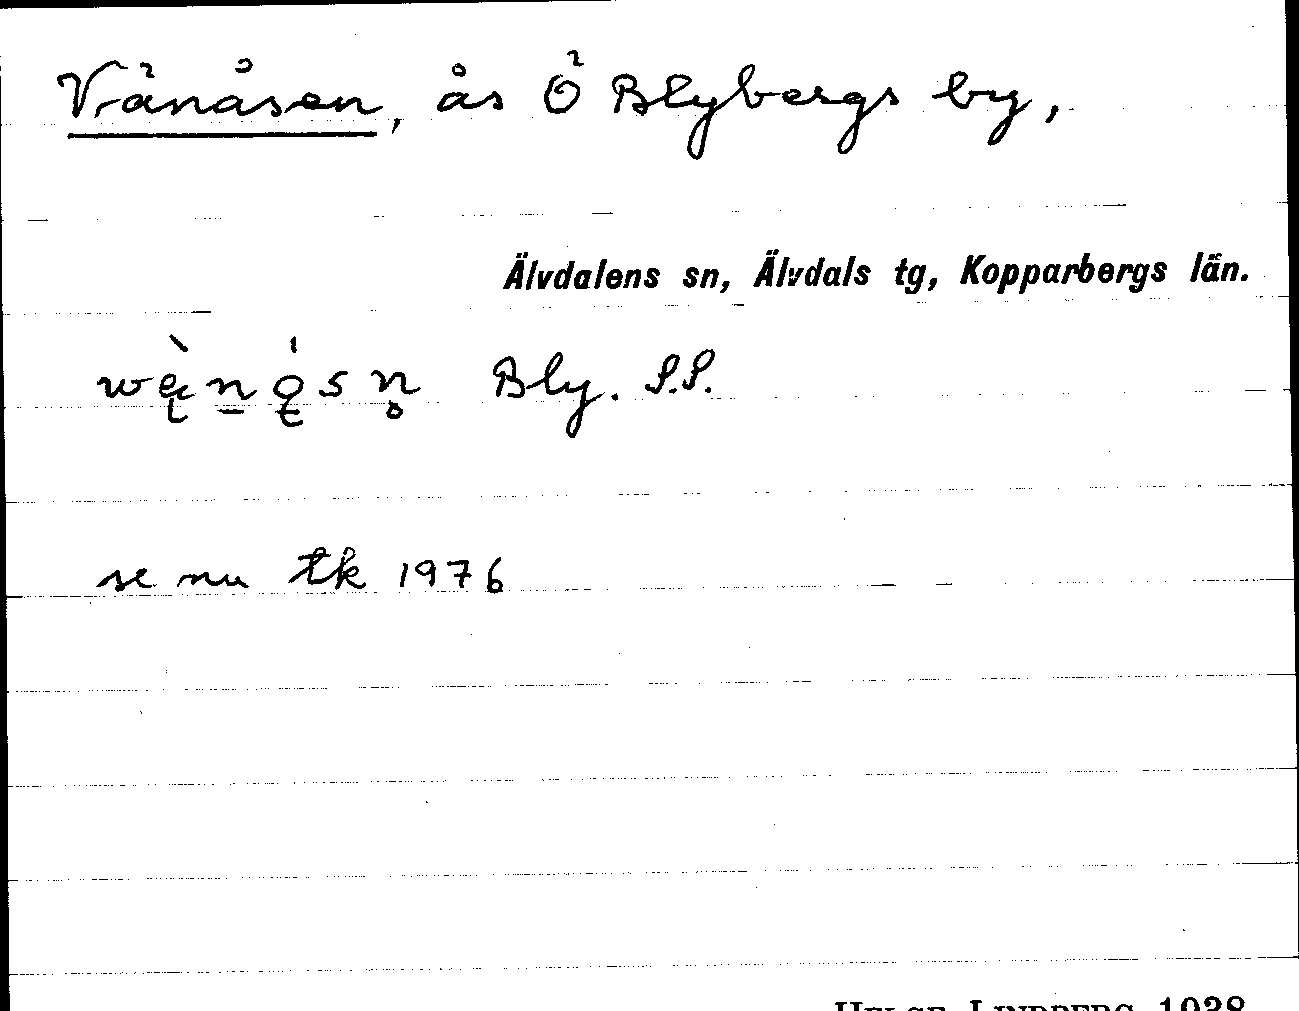 Vrånåsen, ås Ö Blybergs by,
Älvdalens sn, Älvdals tg, Kopparbergs län.
Bly. S.S.
se nu tk 1976
HELGE LINDBERG 1938